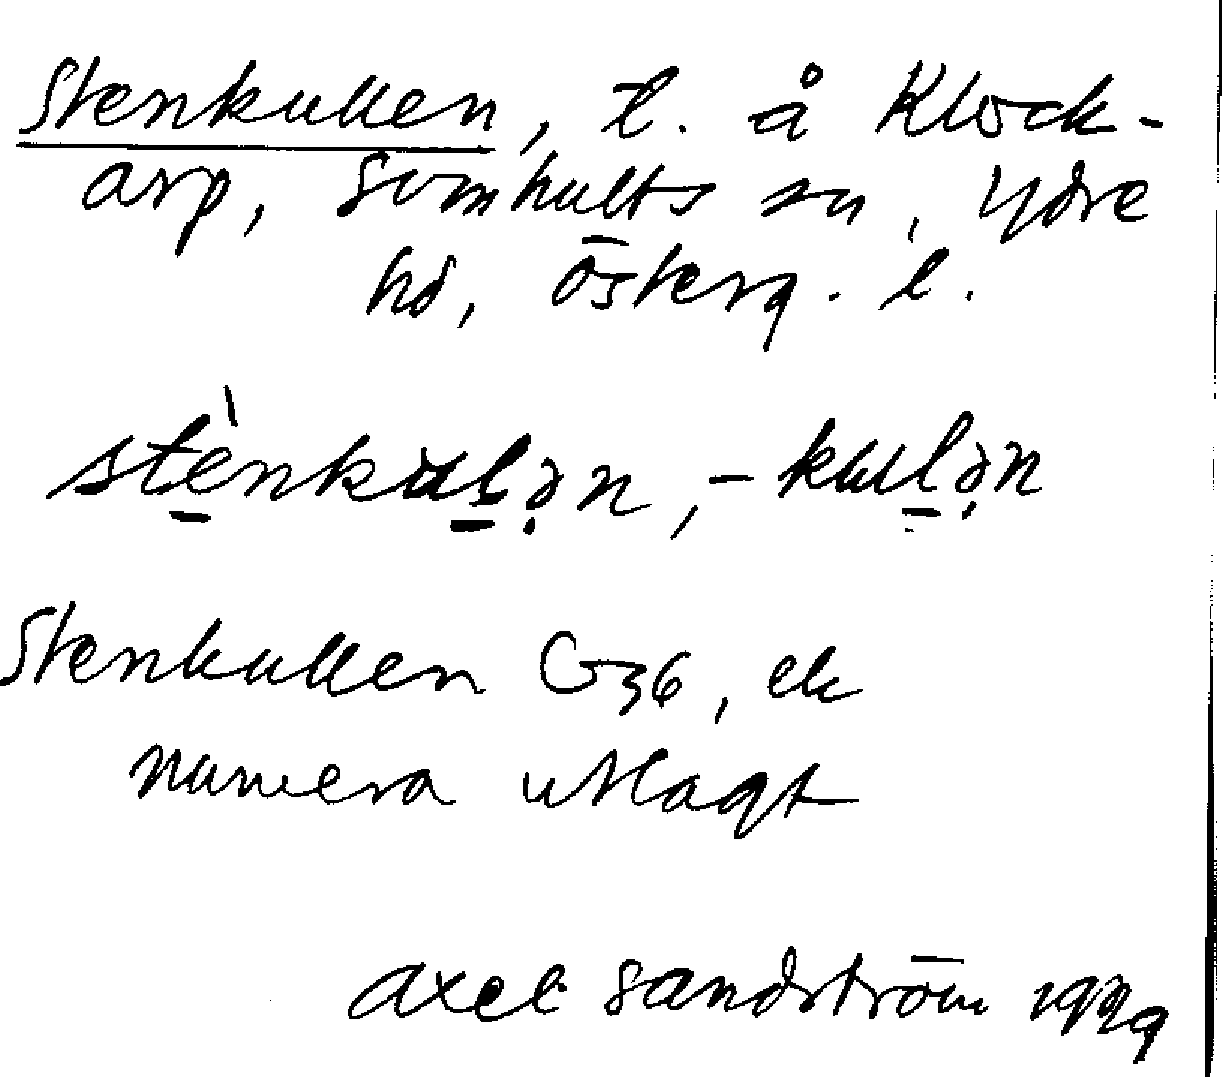 Stenkullen, t. å Klock-
arp, Somhults sn, Ydre
hd, Österg. l.
stènkulən, -kulən
Stenkullen G36, ek
numera utlagt
Axel Sandström 1929